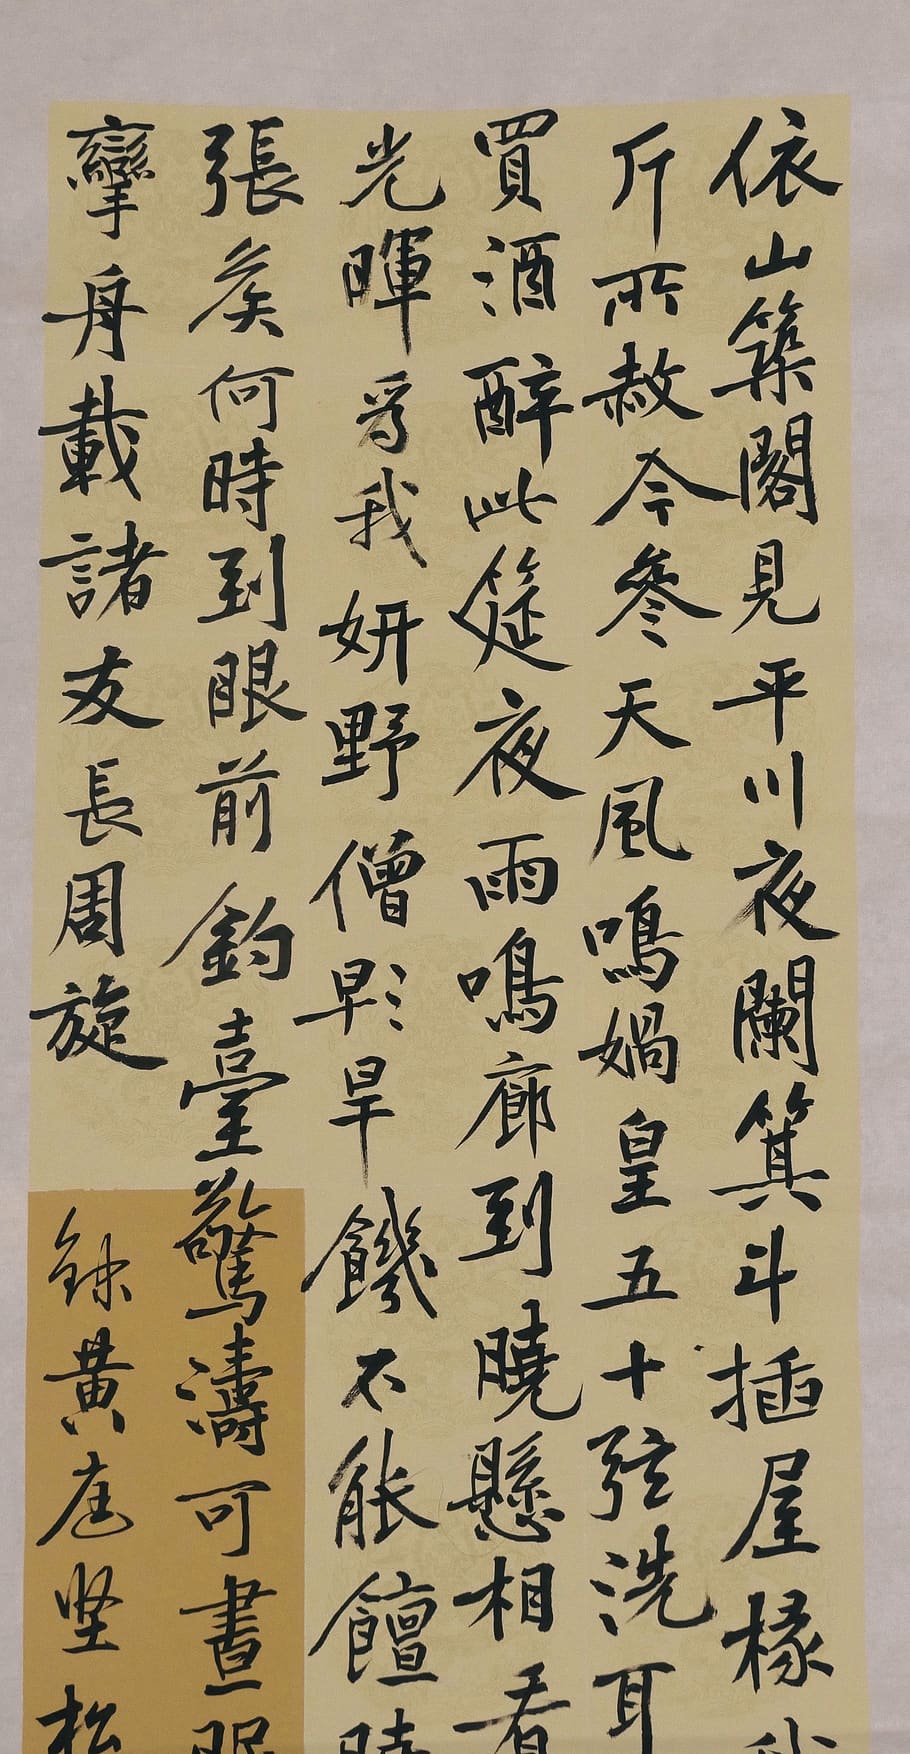 依山築閣見平川夜闌箕斗插屋椽我
斤所赦今參天風鳴媧皇五十弦洗耳
買酒醉此筵夜雨鳴廊到曉懸相看
光暉爲我妍野僧早旱饑不能饘時
張侯何時到眼前釣臺驚濤可晝眠
攣舟載諸友長周旋 錄黄庭坚松